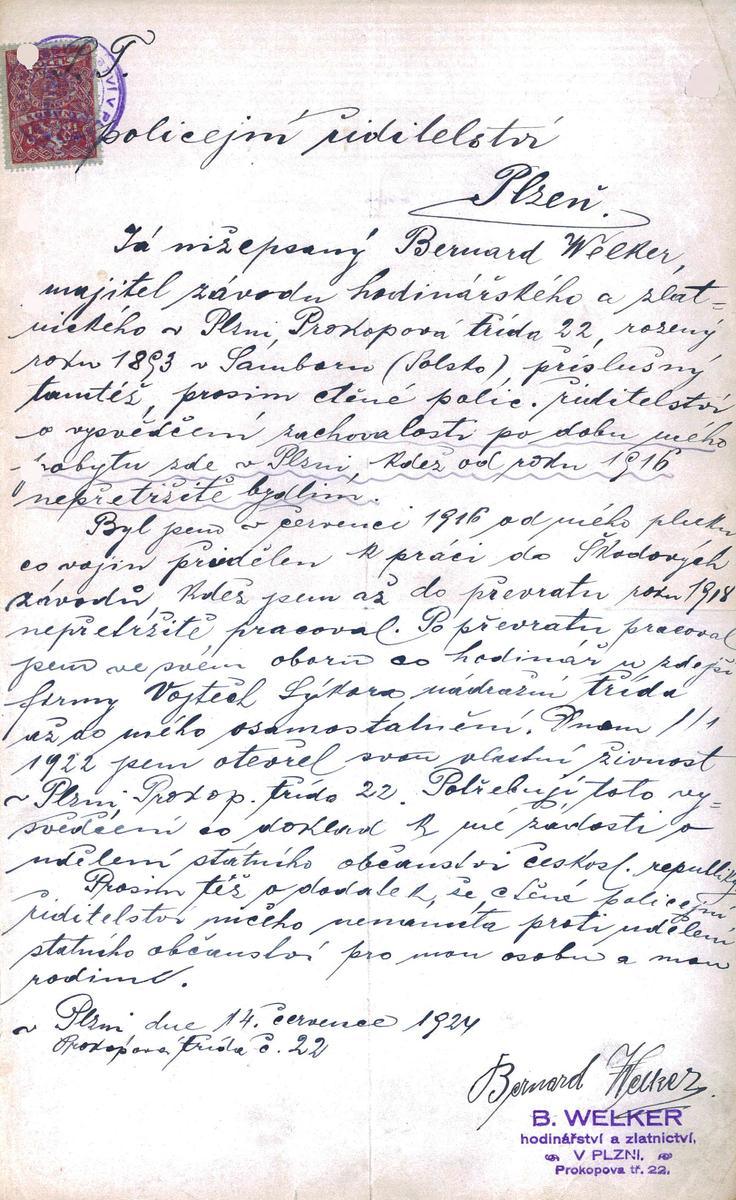 S. T.
policejní řiditelství
Plzeň.
Já nížepsaný Bernard Welker,
majitel závodu hodinářského a zlat-
nického v Plzni, Prokopová třída 22, rozený
roku 1893 v Samboru (Polsko) příslušný
tamtéž, prosím ctěné polic. řiditelství
o vysvědčení zachovalosti po dobu mého
pobytu zde v Plzni, kdež od roku 1916
nepřetržitě bydlím.
Byl jsem v červenci 1916 od mého pluku
co vojín přidělen k práci do Škodových
závodů, kdež jsem až do převratu roku 1918
nepřetržitě pracoval. Po převratu pracoval
jsem ve svém oboru co hodinář u zdejší
firmy Vojtěch Sýkora nádražní třída
až do mého osamostatnění. Dnem 1/1
1922 jsem otevřel svou vlastní živnost
v Plzni, Prokop. třída 22. Potřebuji toto vy-
svědčení co doklad k mé žádosti o
udělení státního občanství českosl. republiky
Prosím též o dodatek, že ctěné policejní
řiditelství ničeho nenamítá proti udělení
státního občanství pro mou osobu a mou
rodinu.
v Plzni dne 14. července 1924
Prokopova třída č. 22
Bernard Welker.
B. WELKER
hodinářství a zlatnictví,
V PLZNI,
Prokopova tř. 22.